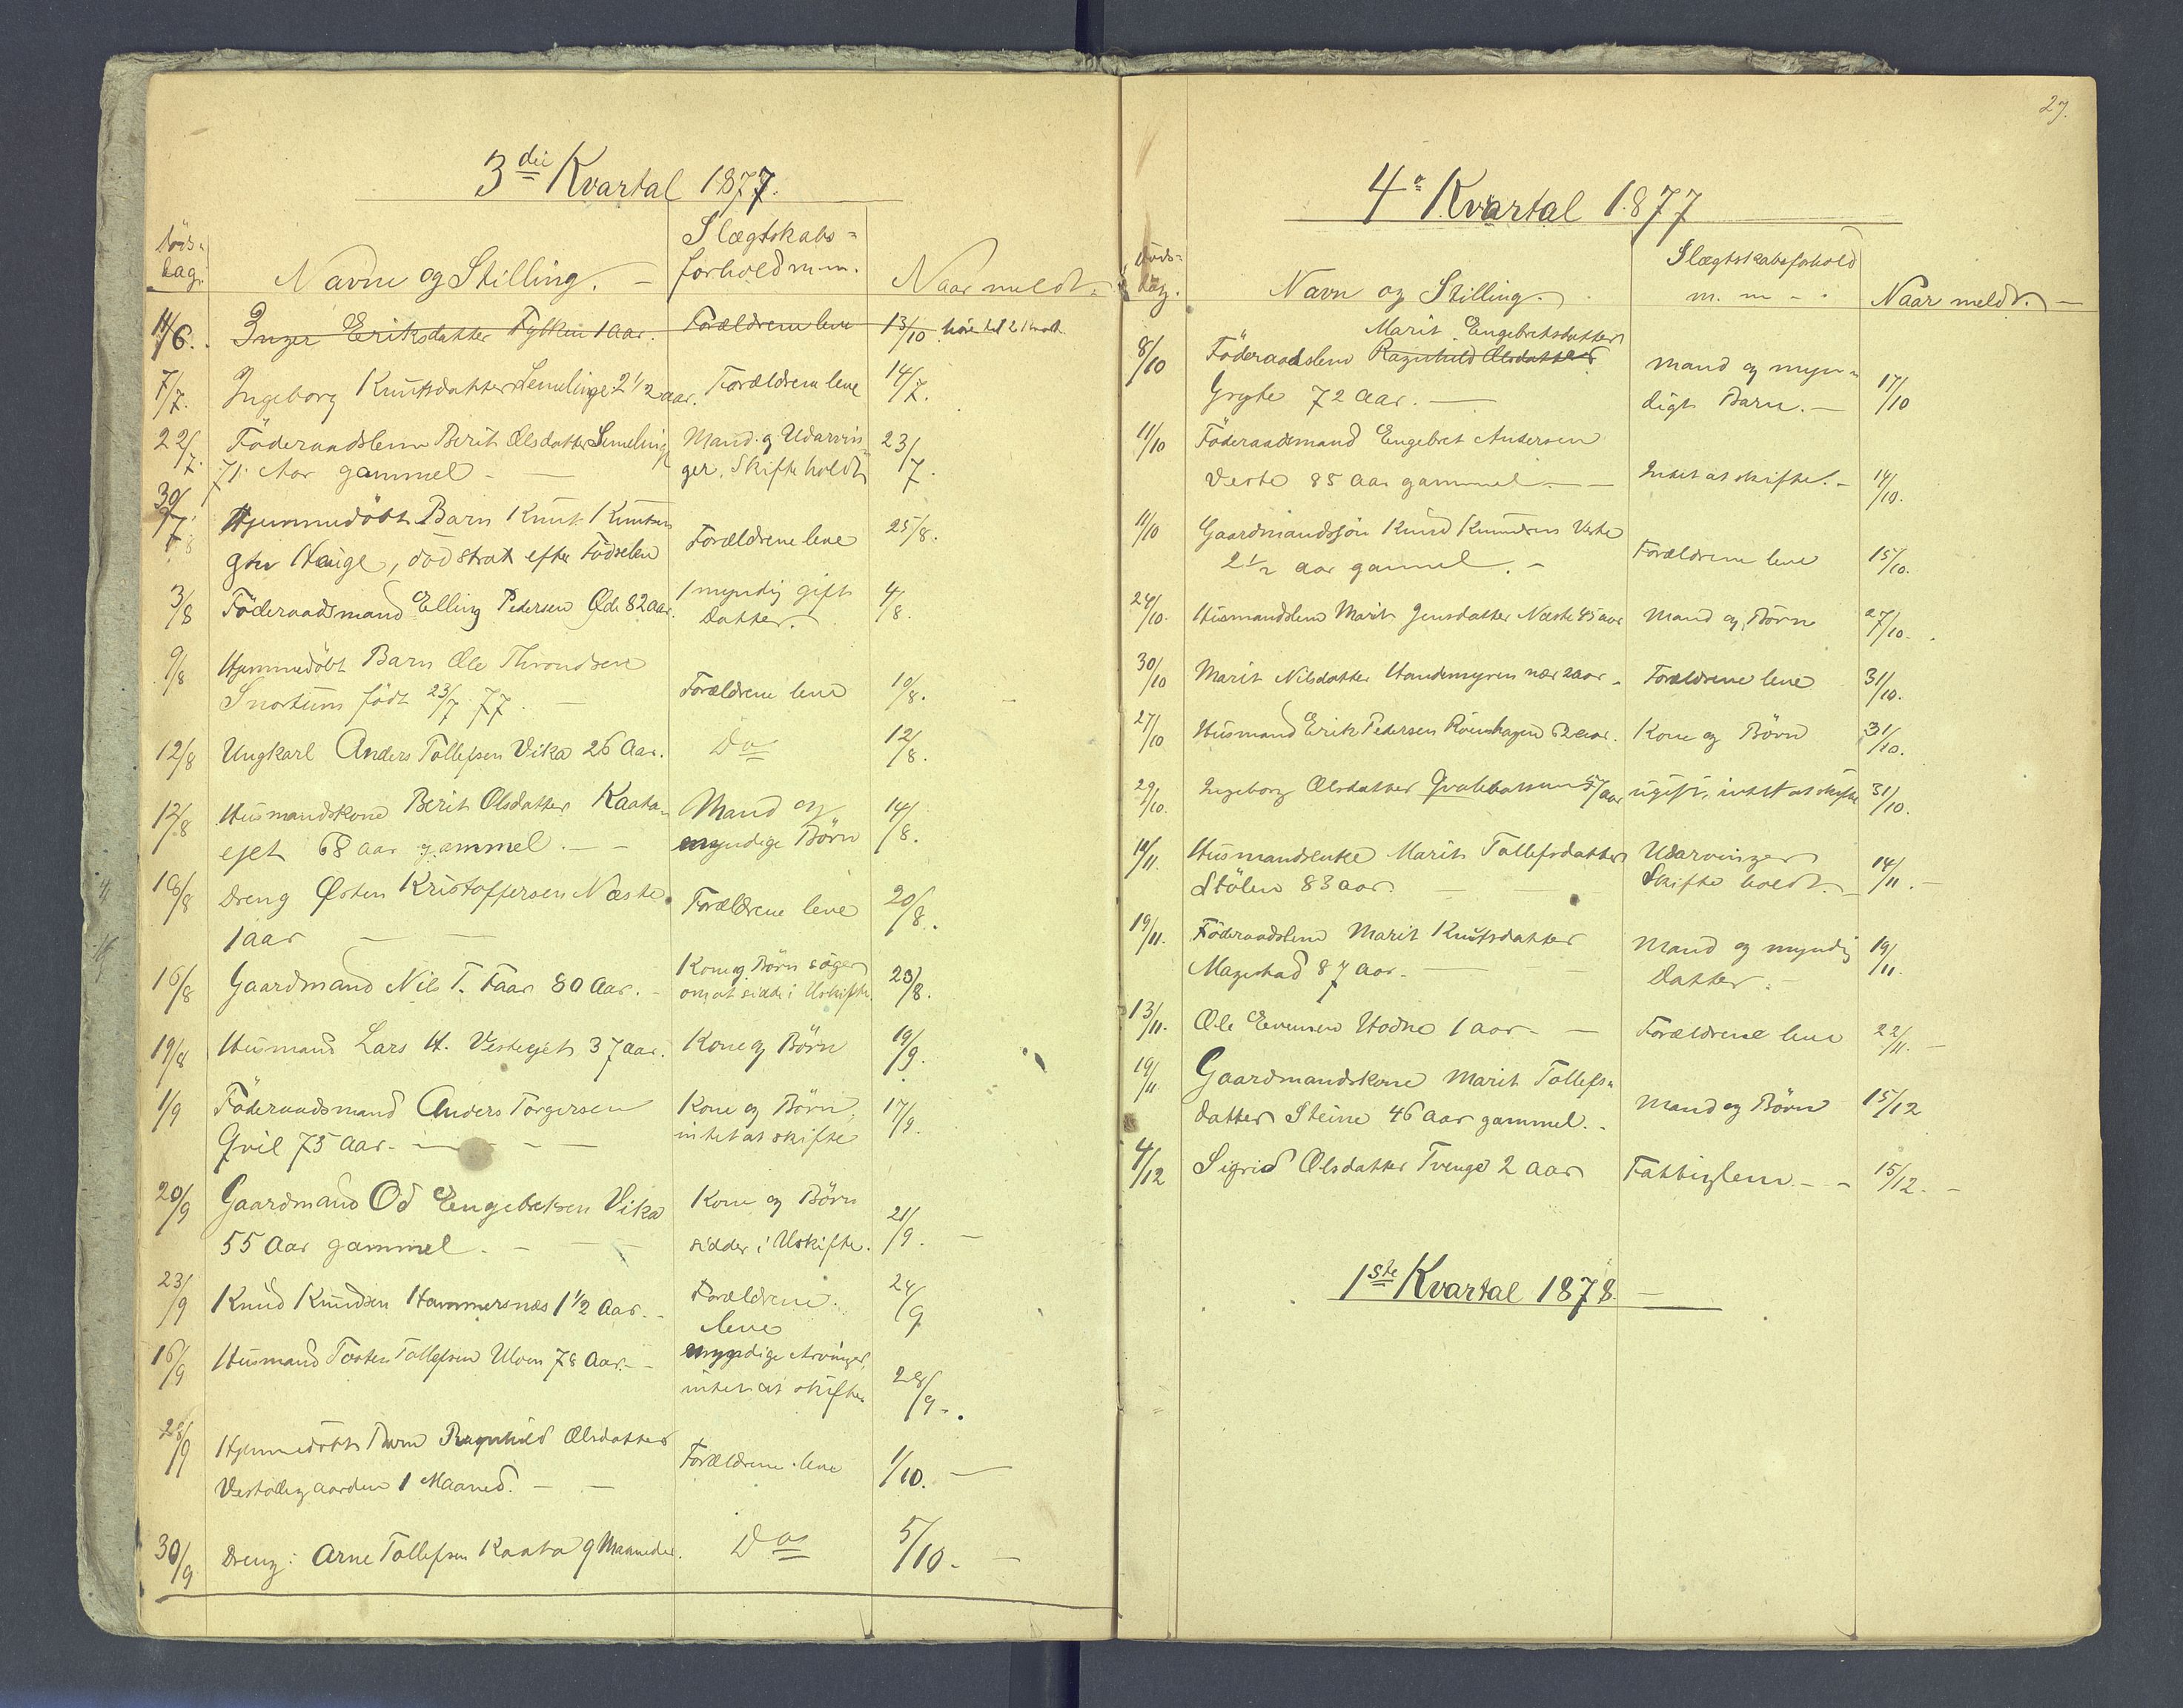 3die Kvartal 1877.
Døds-
dag.
Navne og Stilling. —
Slægtskabs-
forhold m.m.
Naar meldt.
11/6. Inger Eriksdatter Fylken 1 aar. Forældrene leve 13/10
7/7. Ingeborg Knutsdatter Semelinge 2 1/2 aar. Forældrene leve 14/7.
22/7. Föderaadslem Berit Olsdatter Semelinge Mand og Udarvin- 23/7.
71 Aar gammel — ger. Skifte holdt
30/7 Hjemmedöbt Barn Knut Knutsen Forældrene leve 25/8.
Hauge, död strax efter Födselen
3/8 Föderaadsmand Elling Pedersen Öde 82 aar. 1 myndig gift 4/8.
Datter.
9/8 Hjemmedöbt Barn Ole Throndsen
Snortum födt 23/7 77. — Forældrene leve 10/8.
12/8 Ungkarl Anders Tollefsen Vika 26 Aar. Do 12/8.
12/8 Husmandskone Berit Olsdatter Kaata- Mand og 14/8.
ejet 68 aar gammel. — myndige Börn
16/8 Dreng Østen Kristoffersen Næste Forældrene leve 20/8.
1 aar —
16/8 Gaardmand Nils T. Faar 80 Aar. Kone og Börn söger 23/8.
om at sidde i Uskifte.
19/8 Husmand Lars H. Vesteejet 37 aar. Kone og Börn 19/9.
1/9 Föderaadsmand Anders Torgersen Kone og Börn, 17/9.
Qvil 75 Aar. — intet at skifte
20/9 Gaardmand Od Engebretsen Vika Kone og Börn 21/9.
55 Aar gammel. — sidder i Uskifte.
23/9 Knud Knudsen Hammersnæs 1 1/2 Aar. Forældrene 24/9
leve
16/9 Husmand Tosten Tollefsen Ulven 78 Aar. — myndige Arvinger, 28/9.
intet at skifte.
28/9 Hjemmedöbt Barn Ragnhild Olsdatter Forældrene leve 1/10. —
1 Maaned. —
30/9 Dreng: Arne Tollefsen Kaata 9 Maaneder. Do 5/10. —
27.
4o Kvartal 1877
Döds-
dag.
Navn og Stilling.
Slægtskabsforhold
m. m.
Naar meldt. —
Marit Engebretsdatter
8/10 Föderaadslem Ragnhild Olsdatter Mand og myn- 17/10
Gryte 72 Aar. — digt Barn. —
11/10 Föderaadsmand Engebret Andersen
Veste 85 Aar gammel — Intet at skifte. 14/10.
11/10 Gaardmandssön Knud Knudsen Veste Forældrene leve 15/10.
2 1/2 aar gammel. —
24/10. Husmandslem Marit Jensdatter Næste 45 aar Mand og Börn 27/10.
30/10 Marit Nilsdatter Handemyren nær 2 aar. Forældrene leve 31/10.
27/10 Husmand Erik Pedersen 62 aar. Kone og Börn 31/10.
29/10. Ingeborg Olsdatter 57 aar ugift, intet at skifte 31/10.
10/11. Husmandsenke Marit Tollefsdatter Udarvinger 14/11. —
Stölen 83 aar. — Skifte holdt. —
19/11. Föderaadslem Marit Knutsdatter Mand og myndig 19/11.
Magestad 87 aar. — Datter. —
13/11. Ole Evensen Hodne 1 aar. — Forældrene leve 22/11. —
19/11 Gaardmandskone Marit Tollefs- Mand og Börn 15/12
datter Steine 46 aar gammel.
4/12 Sigrid Olsdatter Trenge 2 aar Fattiglem. — 15/12. —
1ste Kvartal 1878. —